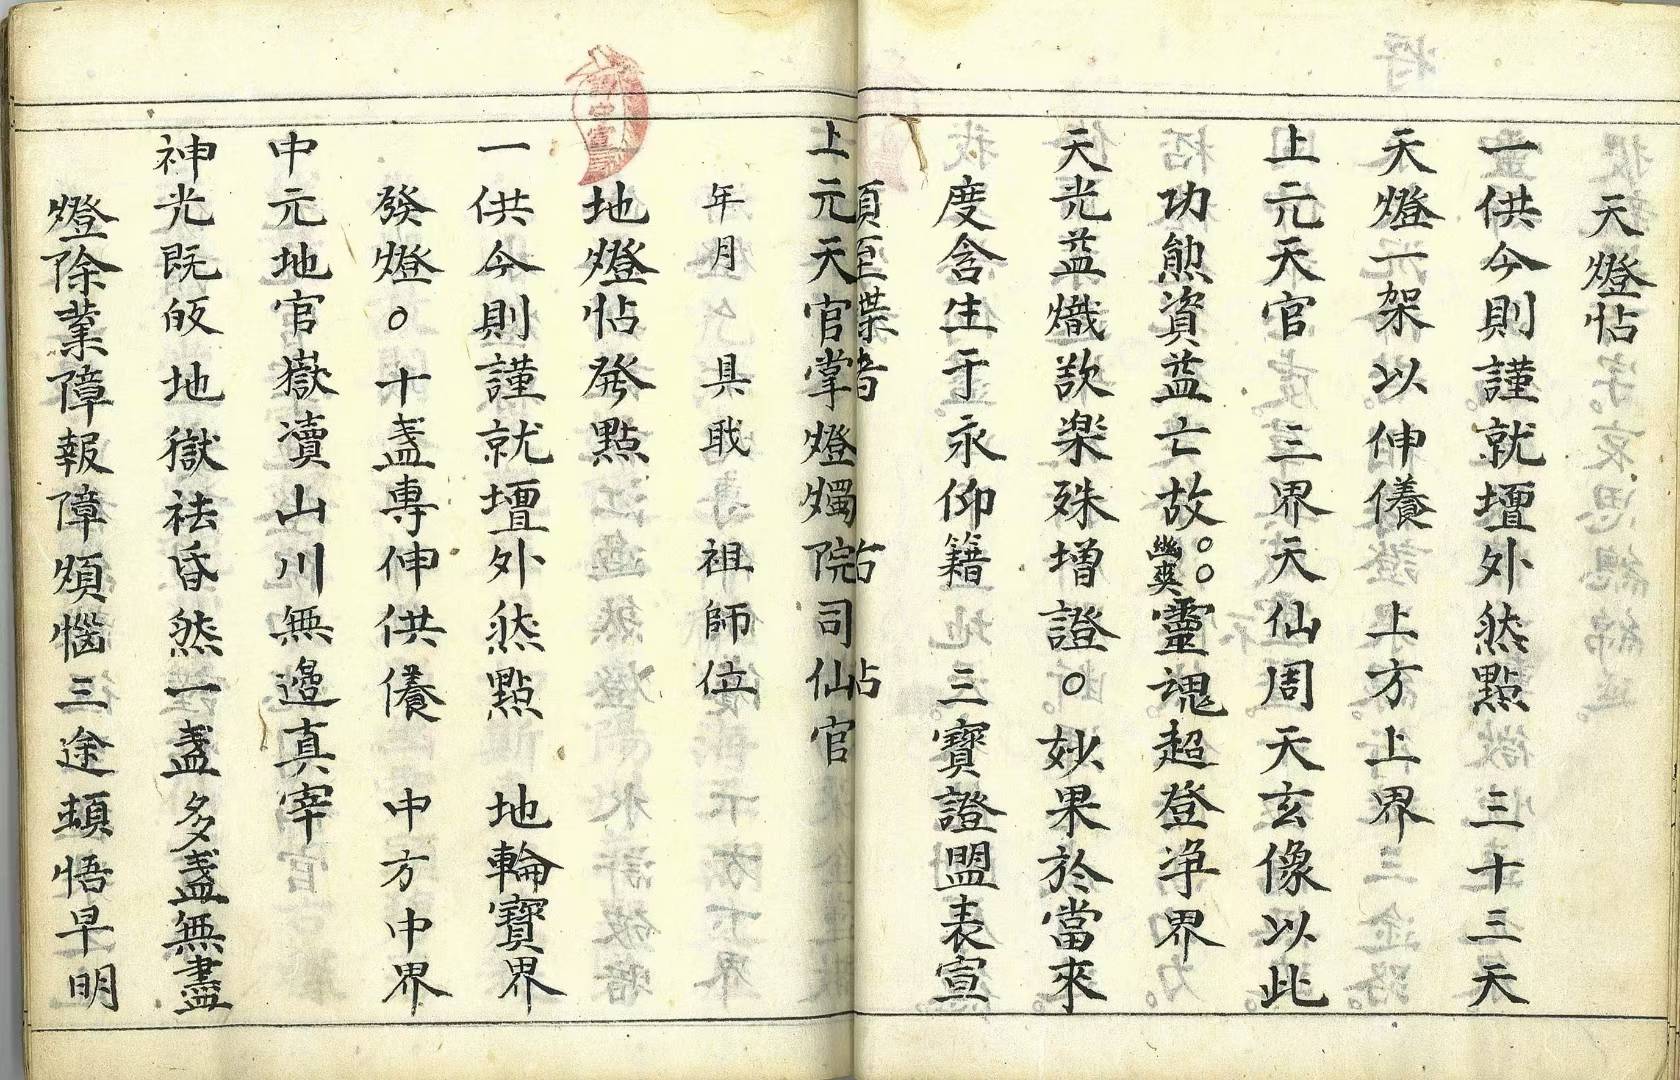 天燈帖
一供今則謹就壇外然點　三十三天
天燈一架以伸儀　上方上界
上元天官　三界天仙周天玄像以此
功勲資益亡故○○幽爽靈魂超登净界
天光益熾欻楽殊增證○妙果於當來
度含生于永仰籍　三寶證盟表宣
上元天官掌燈燭院司仙官
年月　具戢　祖師位
地燈帖発點
一供今則謹就壇外然點　地輪寶界
發燈○十盞專伸供儀　中方中界
中元地官嶽瀆山川無邉真宰
神光既皈地獄祛昏然一盞多盞無盡
燈除業障報障煩惱三途頓悟早明